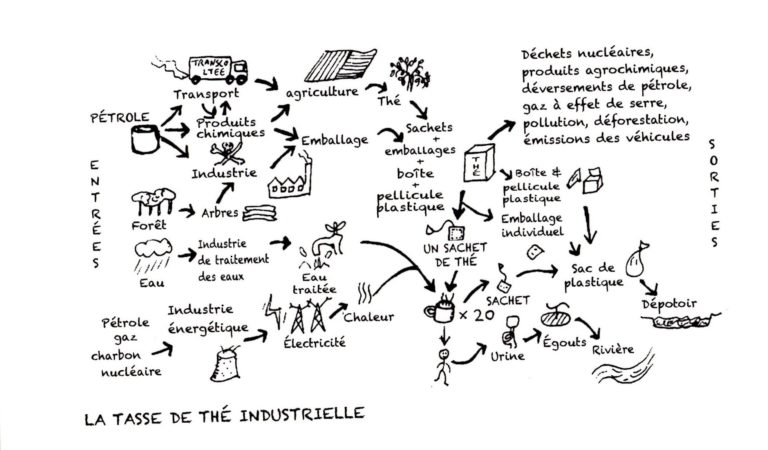 TRANSCO
LTEE
Transport
agriculture
Thé
Déchets nucléaires,
produits agrochimiques,
déversements de pétrole,
gaz à effet de serre,
pollution, déforestation,
émissions des véhicules
PÉTROLE
Produits
chimiques
Industrie
Emballage
Sachets
+
emballages
+
boîte
+
pellicule
plastique
THÉ
Boîte &
pellicule
plastique
Emballage
individuel
ENTRÉES
SORTIES
Forêt
Arbres
Eau
Industrie
de traitement
des eaux
Eau
traitée
UN SACHET
DE THÉ
SACHET
Sac de
plastique
Dépotoir
Pétrole
gaz
charbon
nucléaire
Industrie
énergétique
Électricité
Chaleur
× 20
Urine
Égouts
Rivière
LA TASSE DE THÉ INDUSTRIELLE